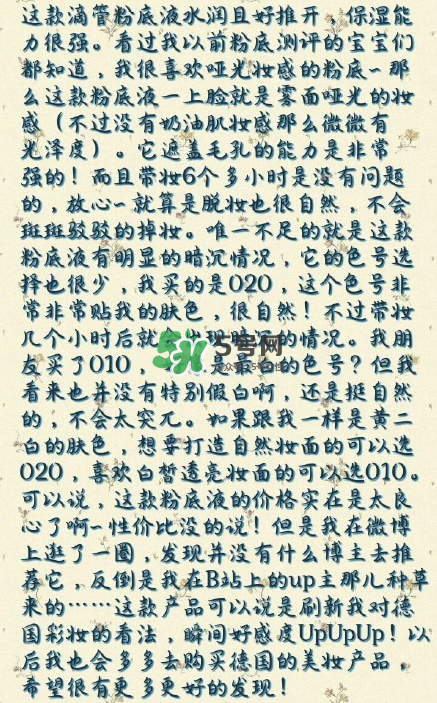 这款滴管粉底液水润且好推开，保湿能
力很强。看过我以前粉底测评的宝宝们
都知道，我很喜欢哑光妆感的粉底~那
么这款粉底液一上脸就是雾面哑光的妆
感（不过没有奶油肌妆感那么微微有
光泽度）。它遮盖毛孔的能力是非常
强的！而且带妆6个多小时是没有问题
的，放心~就算是脱妆也很自然，不会
斑斑驳驳的掉妆。唯一不足的就是这款
粉底液有明显的暗沉情况，它的色号选
择也很少，我买的是020，这个色号非
常非常贴我的肤色，很自然！不过带妆
几个小时后就 的情况。我朋
友买了010， 的色号？但我
5号网
看来也并没有特别假白啊，还是挺自然
的，不会太突兀。如果跟我一样是黄二
白的肤色，想要打造自然妆面的可以选
020，喜欢白皙透亮妆面的可以选010。
可以说，这款粉底液的价格实在是太良
心了啊~性价比没的说！但是我在微博
上逛了一圈，发现并没有什么博主去推
荐它，反倒是我在B站上的up主那儿种草
来的……这款产品可以说是刷新我对德
国彩妆的看法，瞬间好感度UpUpUp！以
后我也会多多去购买德国的美妆产品，
希望很有更多更好的发现！